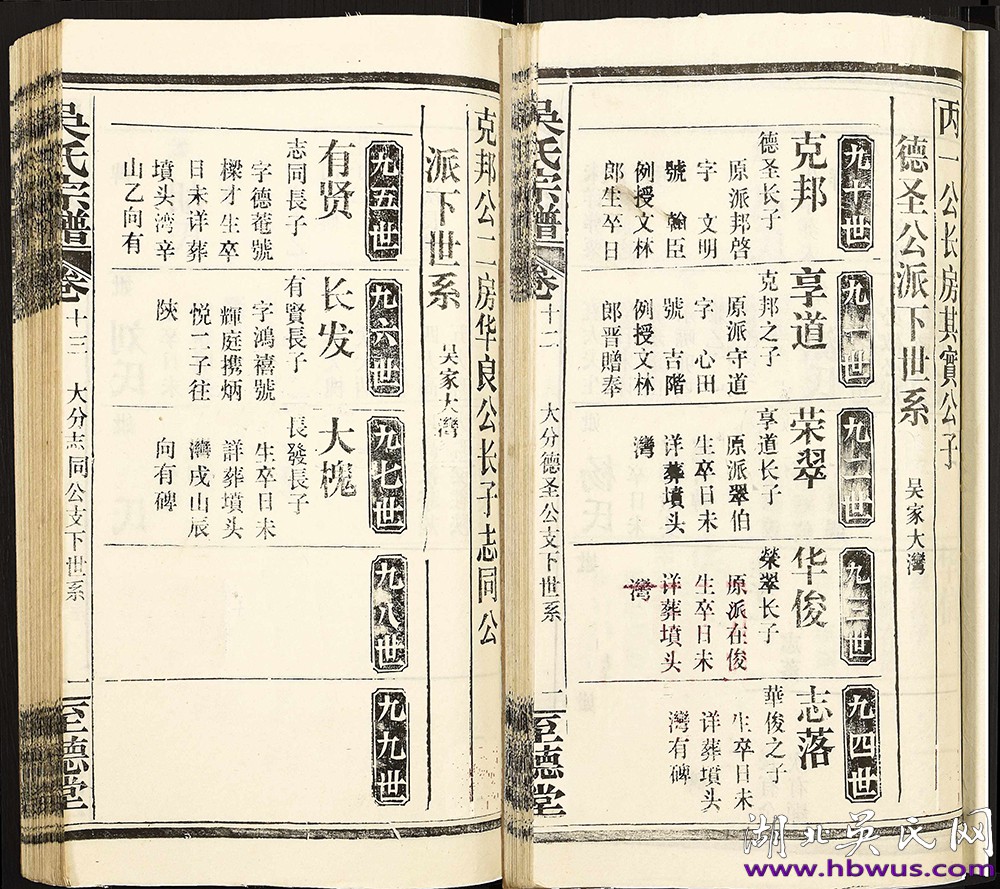 丙一公长房其實公子
德圣公派下世系 吴家大灣
九十世
克邦
德圣长子
原派邦啓
字 文明
號 翰臣
例授文林
郎生卒日
九一世
享道
克邦之子
原派守道
字 心田
號 吉階
例授文林
郎晋贈奉
九二世
荣翠
享道长子
原派翠伯
生卒日未
详葬墳头
灣
九三世
华俊
榮翠长子
原派在俊
生卒日未
详葬墳头
灣
九四世
志落
華俊之子
生卒日未
详葬墳头
灣有碑
吴氏宗譜 卷十二 大分德圣公支下世系 至德堂
克邦公二房华良公长子志同公
派下世系 吴家大灣
九五世
有贤
志同長子
字德菴號
樑才生卒
日未详葬
墳头湾辛
山乙向有
九六世
长发
有賢長子
字鴻禧號
輝庭携炳
悦一子往
陕
九七世
大槐
長發長子
生卒日未
詳葬墳头
灣戌山辰
向有碑
九八世
九九世
吴氏宗譜 卷十三 大分志同公支下世系 至德堂
湖北吴氏网
www.hbwus.com